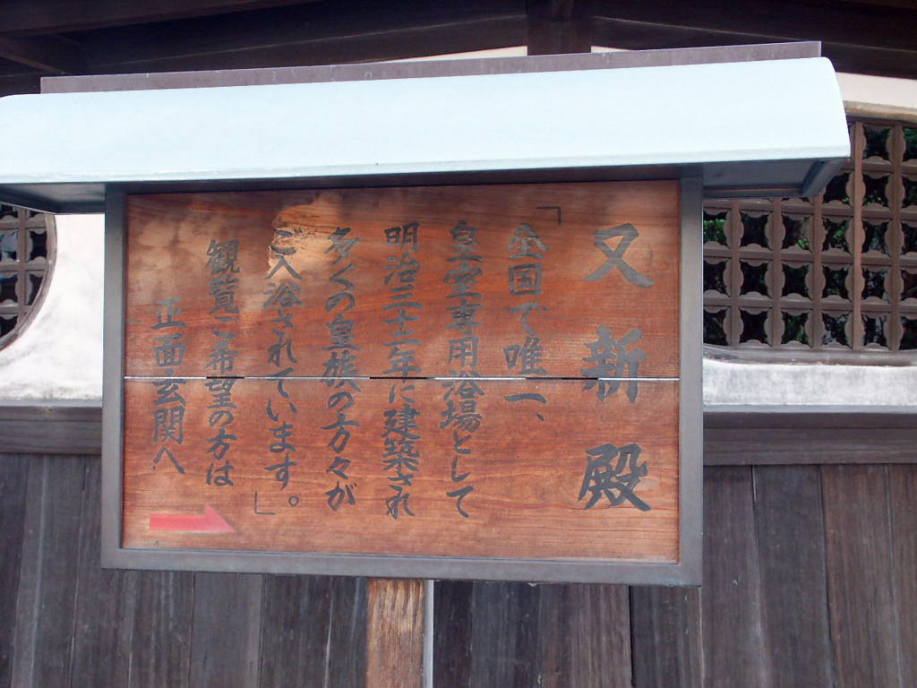 又新殿
「全国で唯一、
皇室専用浴場として
明治三十二年に建築され
多くの皇族の方々が
ご入浴されています。」
観覧ご希望の方は
正面玄関へ